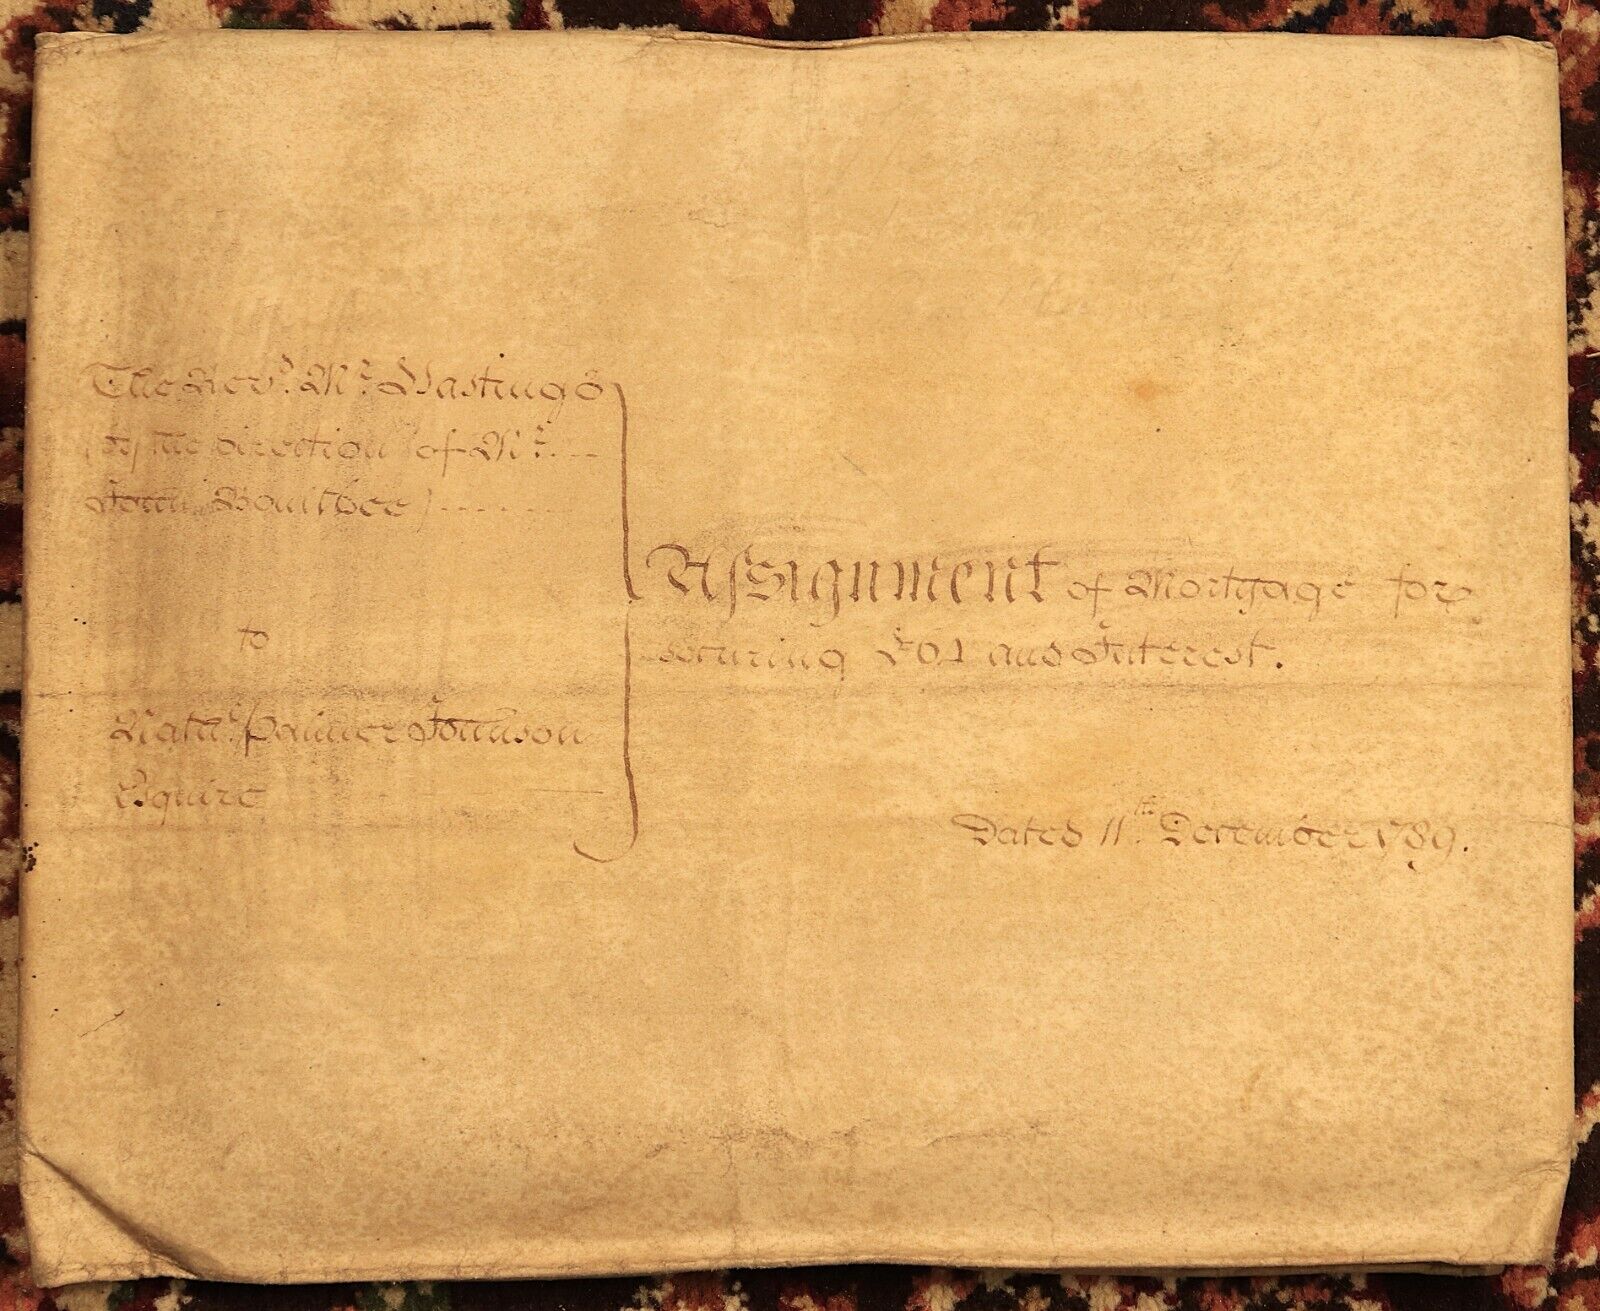 The Rev.d Mr. Hastings
(by the direction of Mr.
John Boultbee)
to
Nath.l Palmer Johnson
Esquire
Assignment of Mortgage for
securing £ and Interest.
Dated 11.th December 1789.